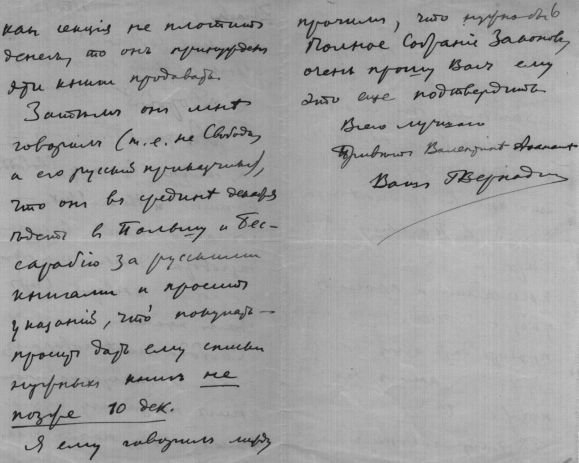 как секция не плотитъ
денегъ, то онъ принужденъ
эти книги продавать.
Затѣмъ онъ мнѣ
говорилъ (т.е. не Свобода,
а его русскій приказчикъ),
что онъ въ срединѣ декабря
ѣдетъ въ Польшу и Бес-
сарабію за русскими
книгами и проситъ
указаній, что́ покупать –
проситъ дать ему списки
нужныхъ книгъ не
позже 10 дек.
Я ему говорилъ между
прочимъ, что нужно бъ
Полное Собраніе Законовъ,
очень прошу Васъ ему
это еще подтвердить.
Всего лучшаго
Привѣтъ Валентинѣ
Вашъ ГВернадскій